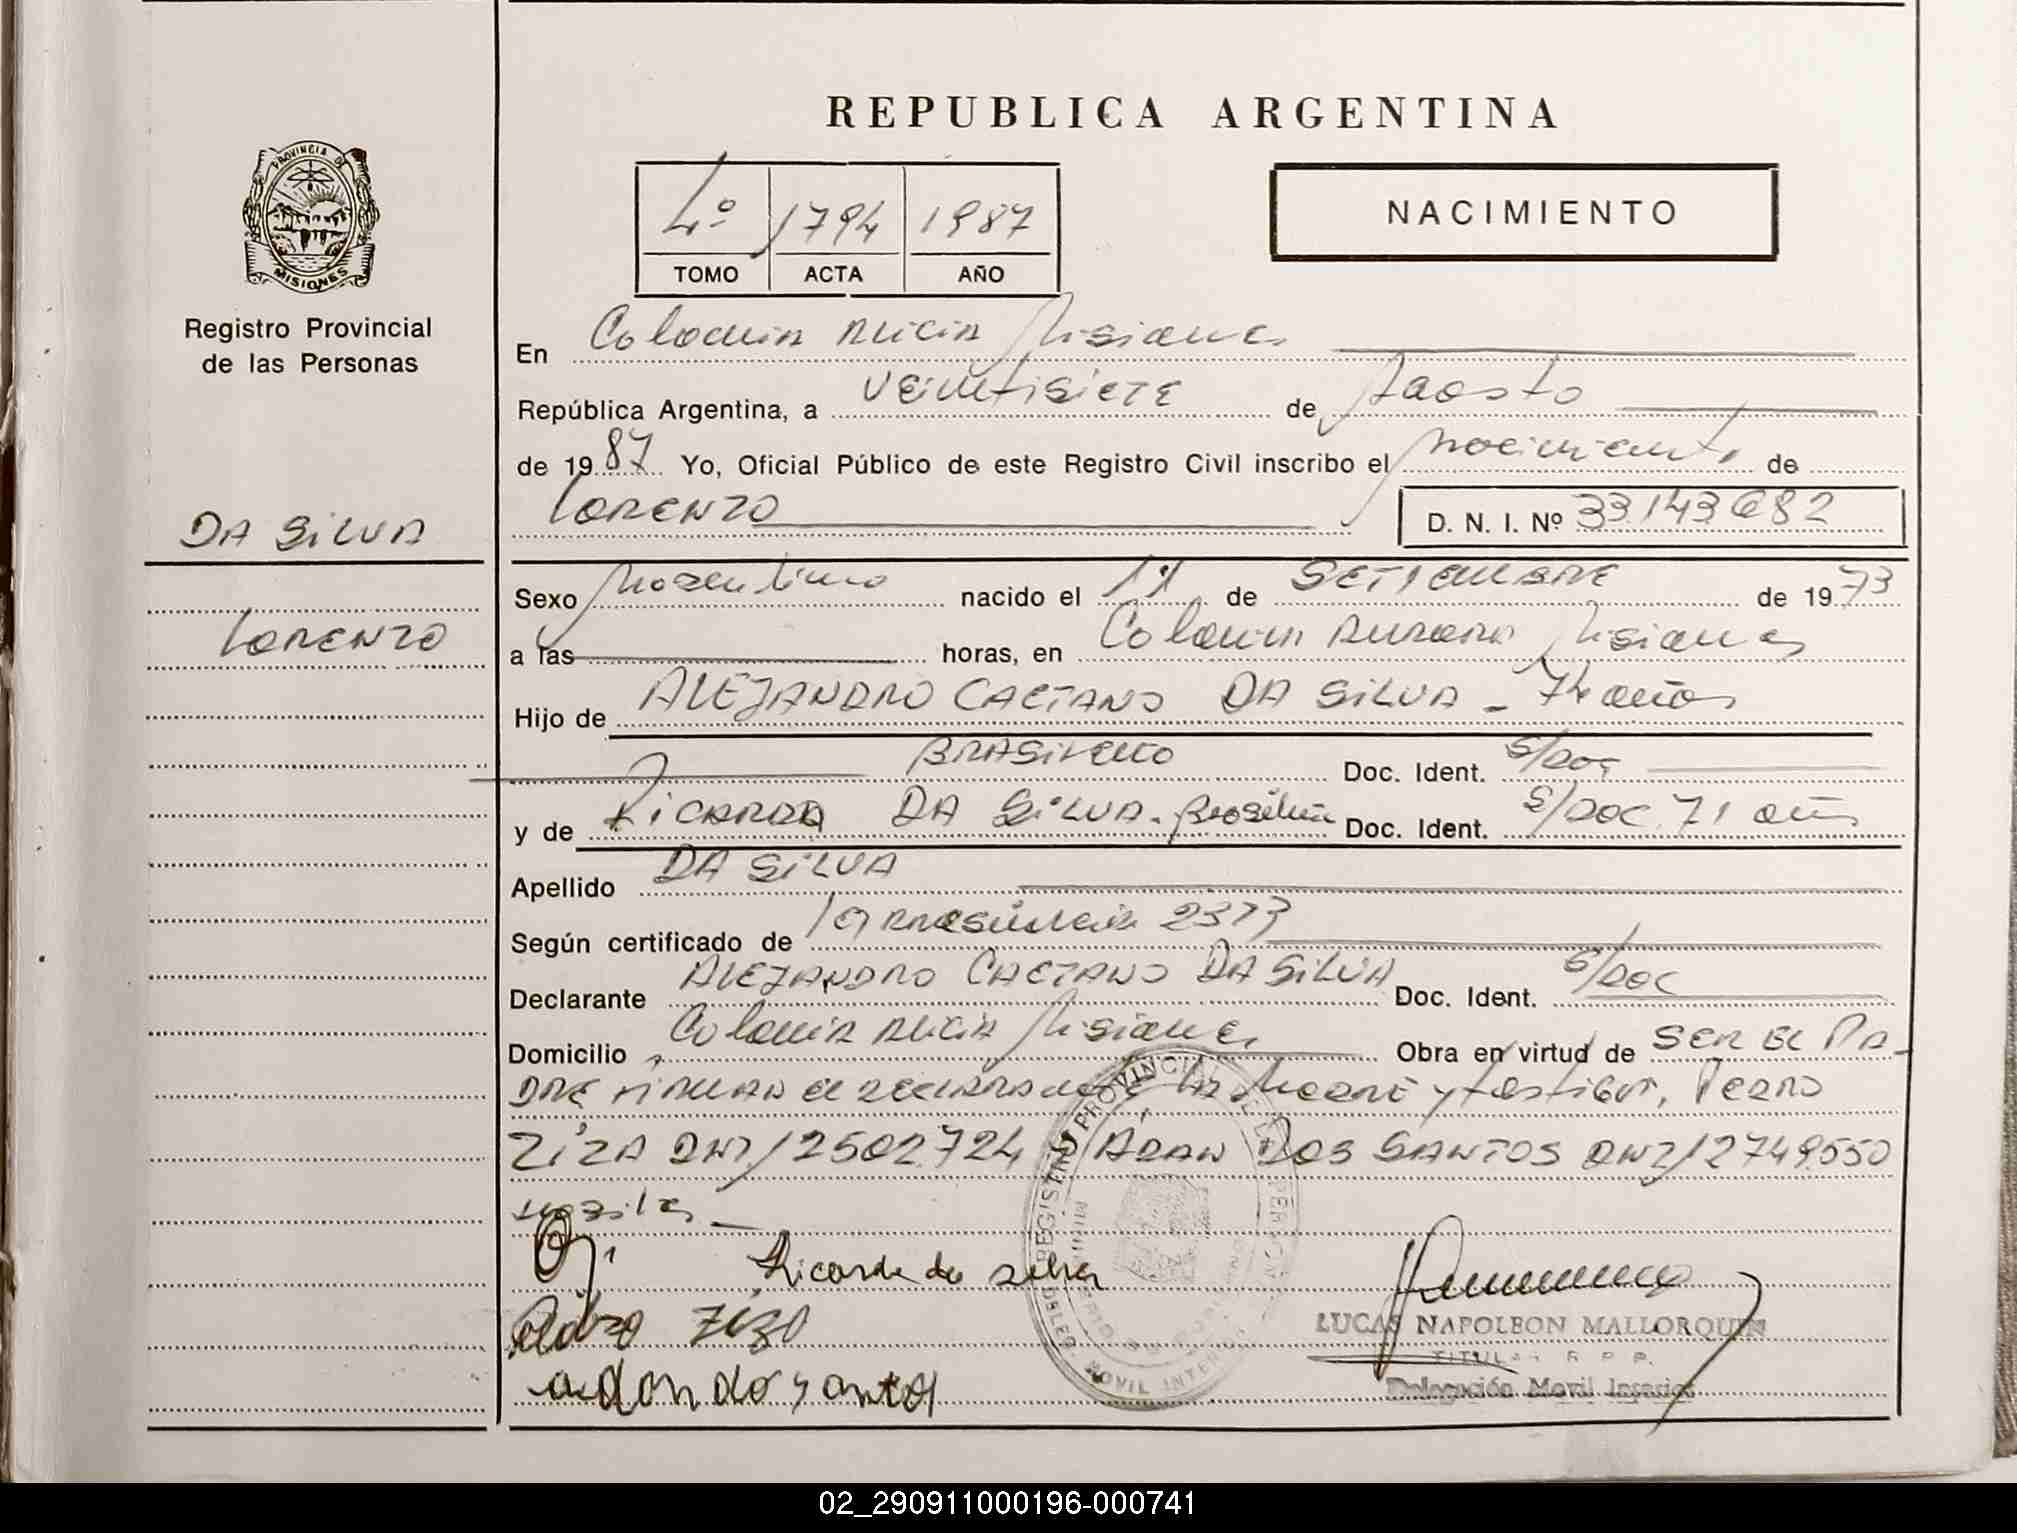 REPUBLICA ARGENTINA
PROVINCIA DE
MISIONES
Registro Provincial
de las Personas
4º 1794 1987
TOMO ACTA AÑO
NACIMIENTO
En Colonia Alicia Misiones
República Argentina, a veintisiete de Agosto
de 1987 Yo, Oficial Público de este Registro Civil inscribo el nacimiento de
Lorenzo D. N. I. Nº 33.143682
DA SILVA
Lorenzo
Sexo Masculino nacido el 11 de SETIEMBRE de 1973
a las horas, en Colonia Aurora Misiones
Hijo de ALEJANDRO CAETANO DA SILVA - 74 años
BRASILEÑO Doc. Ident. S/Doc
y de Ricarda DA SILVA. Brasileña Doc. Ident. S/Doc. 71 años
Apellido DA SILVA
Según certificado de 2373
Declarante ALEJANDRO CAETANO DA SILVA Doc. Ident. S/Doc
Domicilio Colonia Alicia Misiones Obra en virtud de SER EL PA-
DRE FIRMAN el declarante la Madre y testigos, Pedro
ZIZA DNI 12502724 y ADAN DOS SANTOS DNI 12749550
Ricarda da Silva
Ziza
adan do santos
REGISTRO PROVINCIAL DE LAS PERSONAS
LUCAS NAPOLEON MALLORQUIN
TITULAR R. P. P.
Delegación Movil
02_290911000196-000741